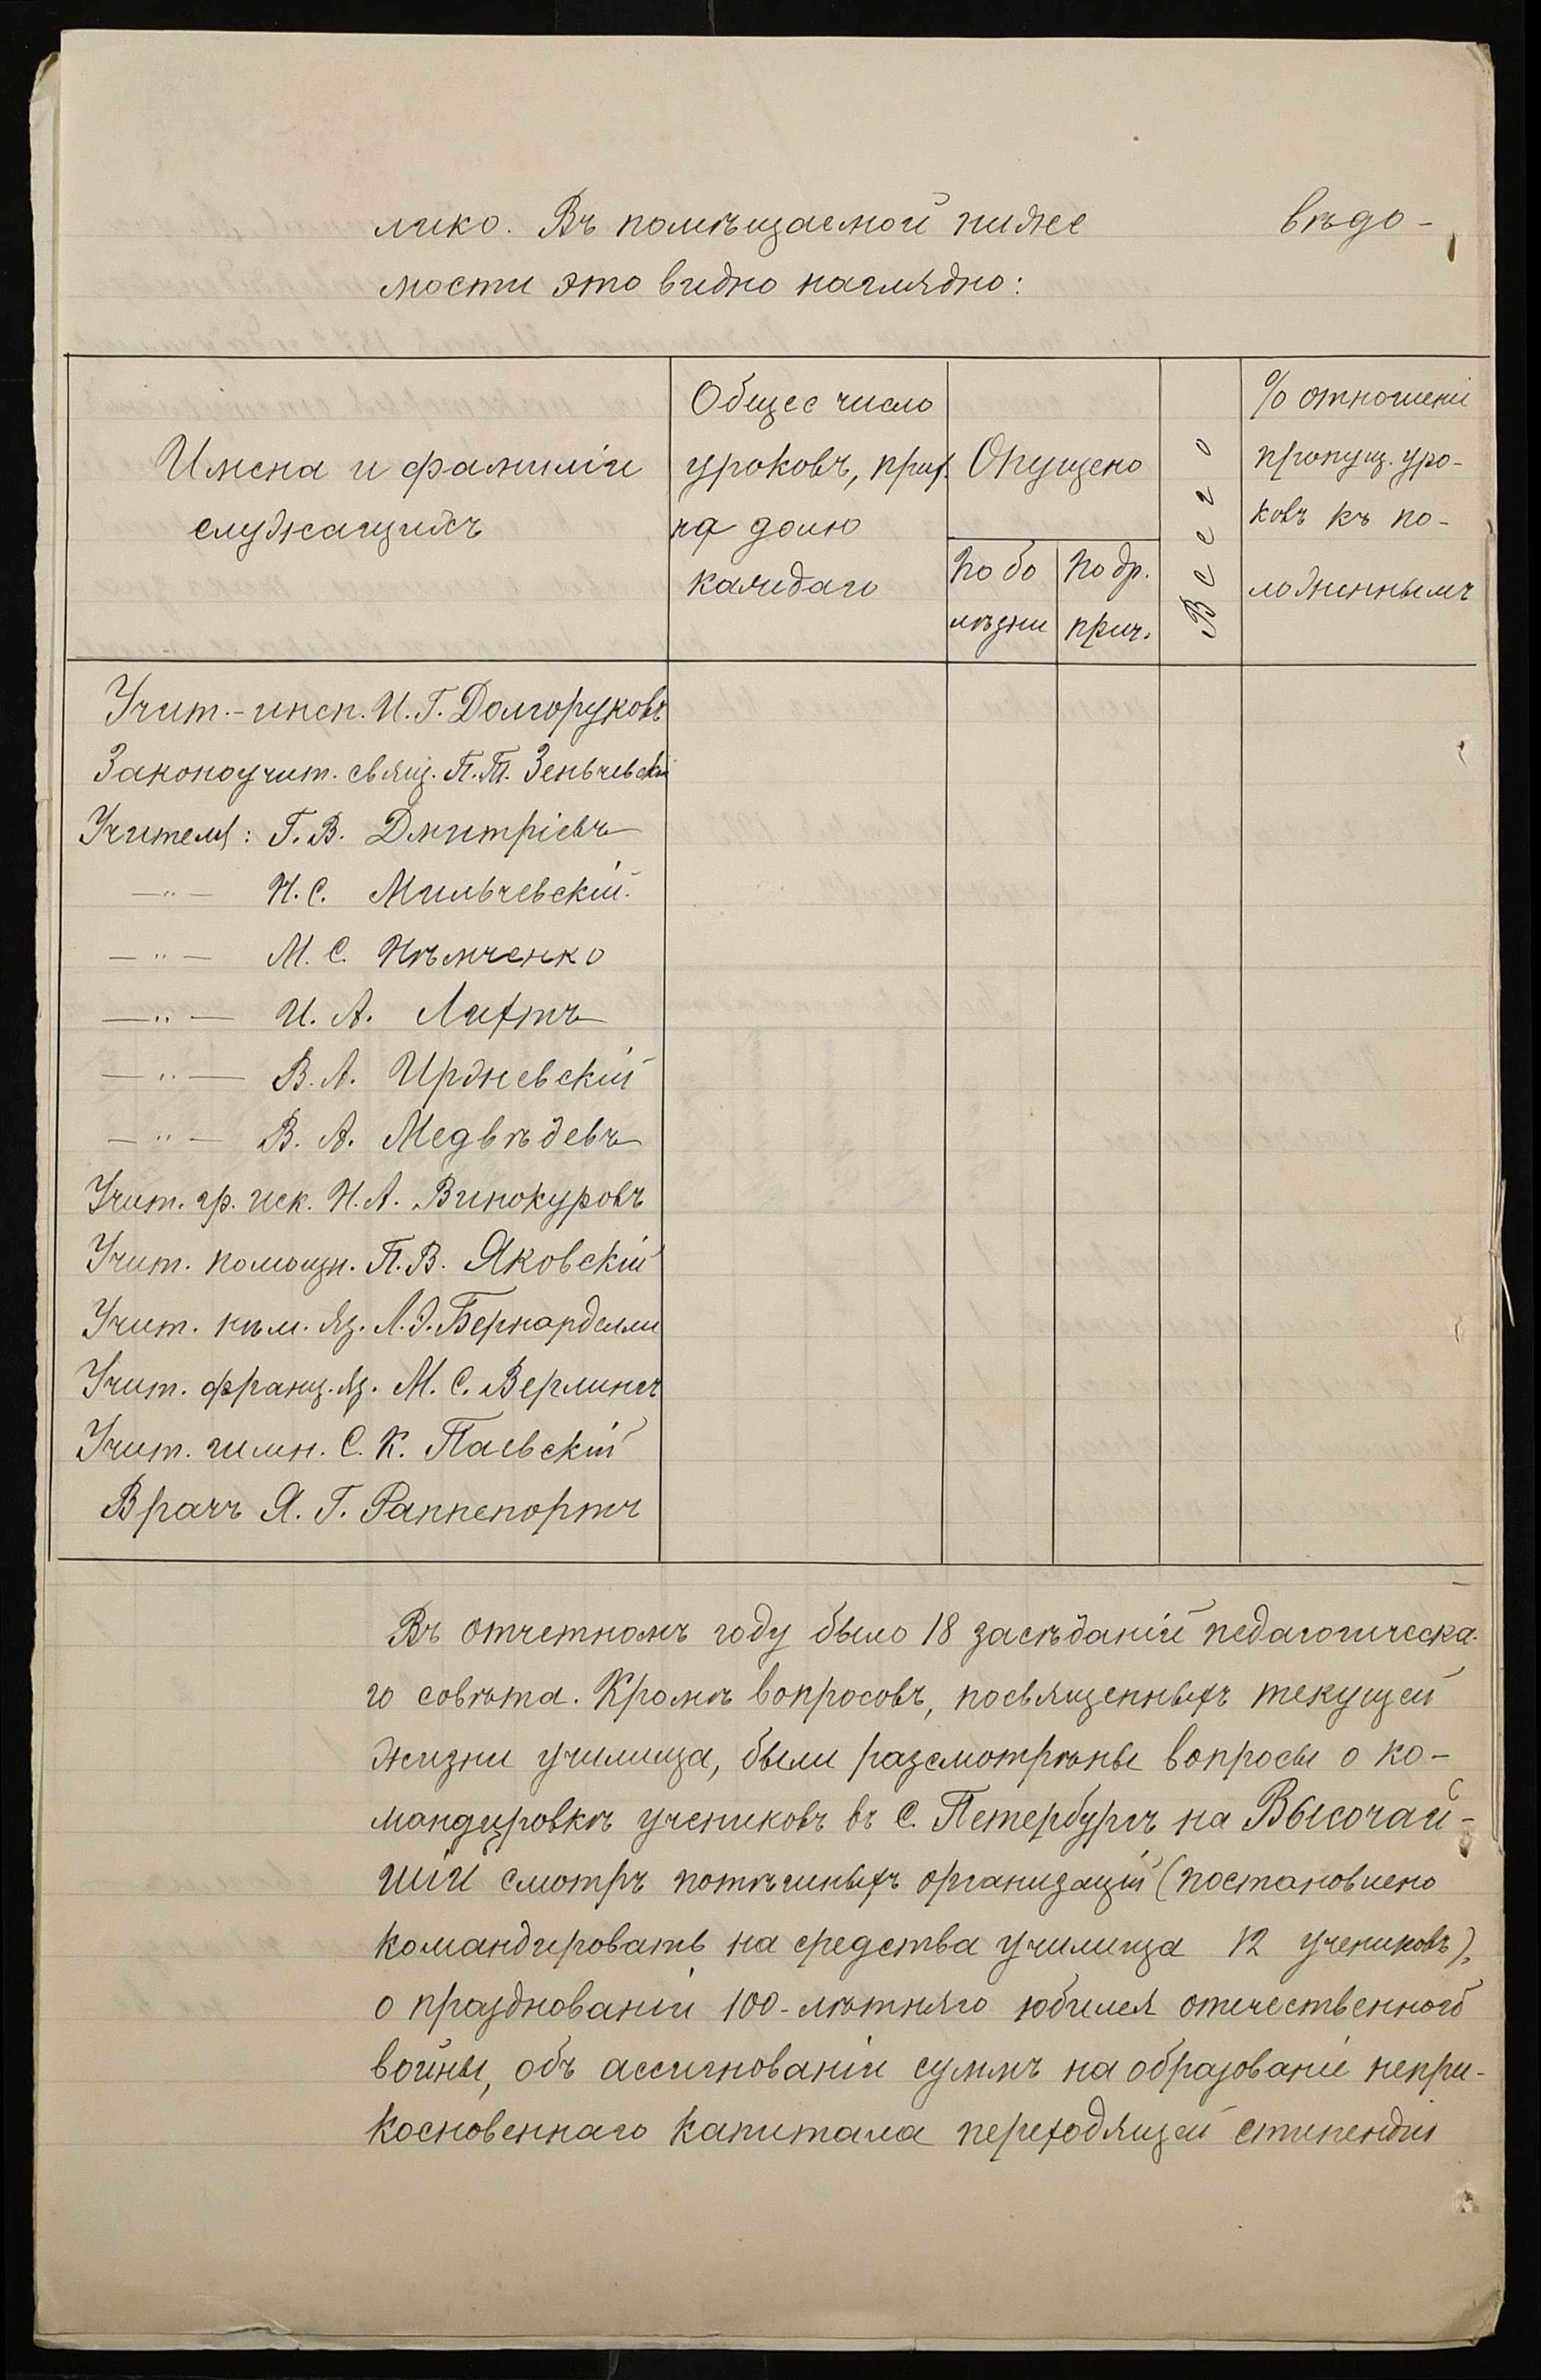 лико. Въ помѣщаемой ниже вѣдо-
мости это видно наглядно:
Имена и фамиліи
служащихъ
Общее число
уроковъ, прих.
на долю
каждаго
Опущено
по бо
лѣзни
по др.
прич.
Всего
% отношеніи
пропущ. уро-
ковъ къ по-
ложеннымъ
Учит.-инсп. И. Г. Долгоруковъ
Законоучит. свящ. П. Т. Зеньчевскій
Учителя: Г. В. Дмитріевъ
—"— Н. С. Мильчевскій
—"— М. С. Нѣмченко
—"— И. А. Лифтъ
—"— В. А. Иржевскій
—"— В. А. Медвѣдевъ
Учит. гр. иск. Н. А. Винокуровъ
Учит. помощн. П. В. Яковскій
Учит. нѣм. яз. Л. Э. Бернарделли
Учит. франц. яз. М. С. Верлингъ
Учит. гимн. С. К. Паевскій
Врачъ Я. Г. Раппепортъ
Въ отчетномъ году было 18 засѣданій педагогическа-
го совѣта. Кромѣ вопросовъ, посвященныхъ текущей
жизни училища, были разсмотрѣны вопросы о ко-
мандировкѣ учениковъ въ С. Петербургъ на Высочай-
шій смотръ потѣшныхъ организацій (постановлено
командировать на средства училища 12 учениковъ),
о празднованіи 100-лѣтняго юбилея отечественной
войны, объ ассигнованіи суммъ на образованіе непри-
косновеннаго капитала переходящей стипендіи